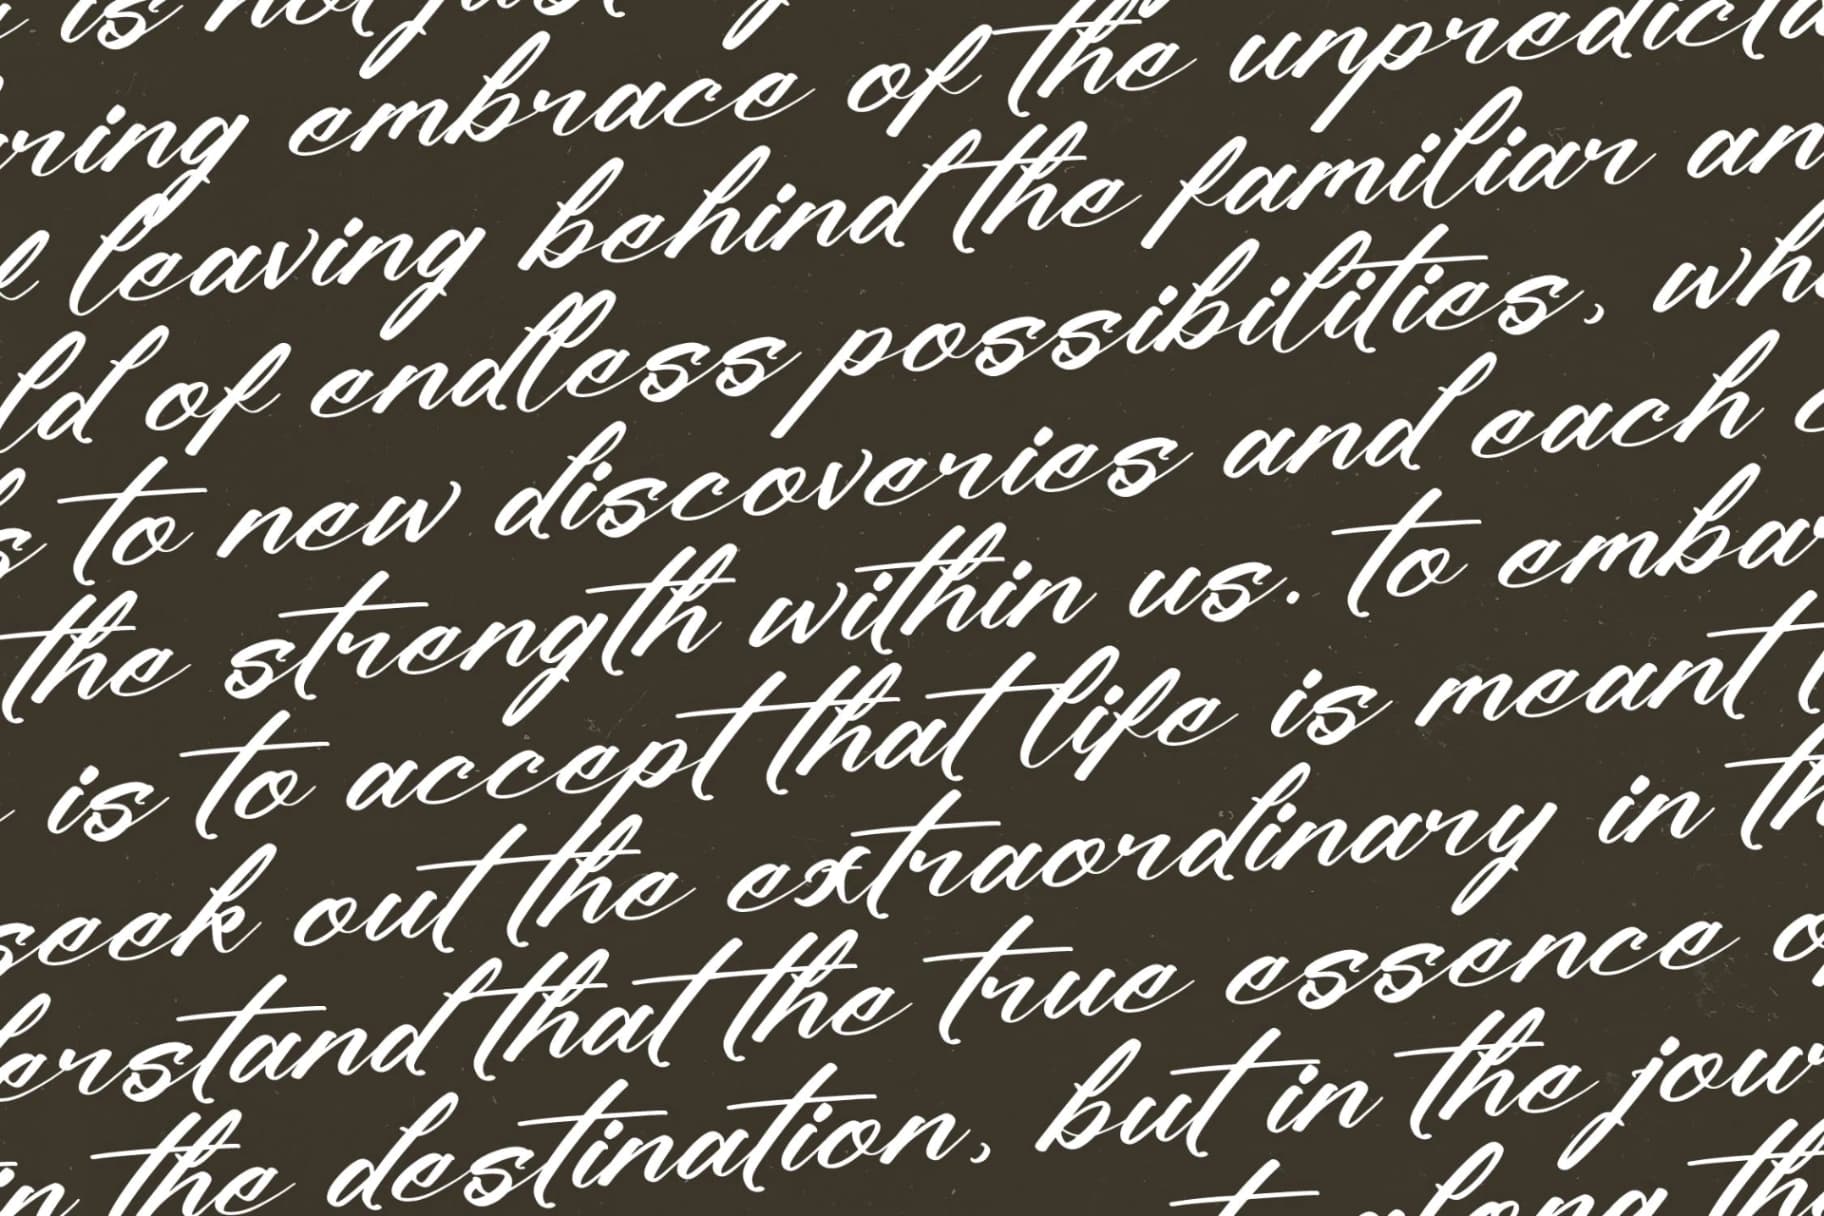 is not just
embrace of the
leaving behind the familiar
of endless possibilities,
to new discoveries and each
the strength within us. to
is to accept that life is meant
seek out the extraordinary in
that the true essence
the destination, but in the
along